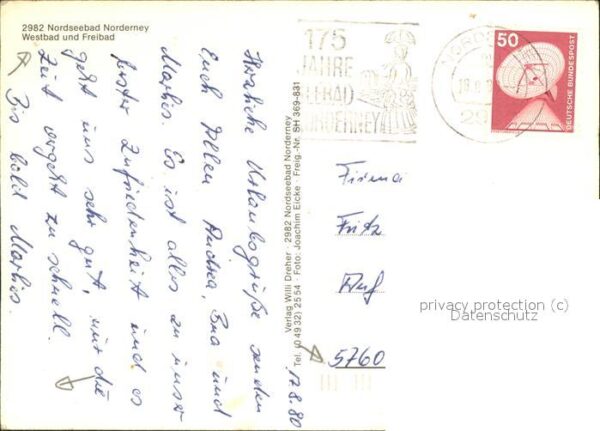 2982 Nordseebad Norderney
Westbad und Freibad
Herzliche Urlaubsgrüße senden
Euch Allen Andrea, Bua und
Marlis. Es ist alles zu unser
bester Zufriedenheit und es
geht uns sehr gut, nur die
Zeit vergeht zu schnell.
Bis bald Marlis.
12.8.80
Verlag Willi Dreher · 2982 Nordseebad Norderney
Tel. (0 49 32) 25 54 · Foto: Joachim Eicke · Freig.-Nr. SH 369-831
175
JAHRE
NORDERNEY
50
DEUTSCHE BUNDESPOST
Firma
Fritz
Auf
5760
privacy protection (c)
Datenschutz